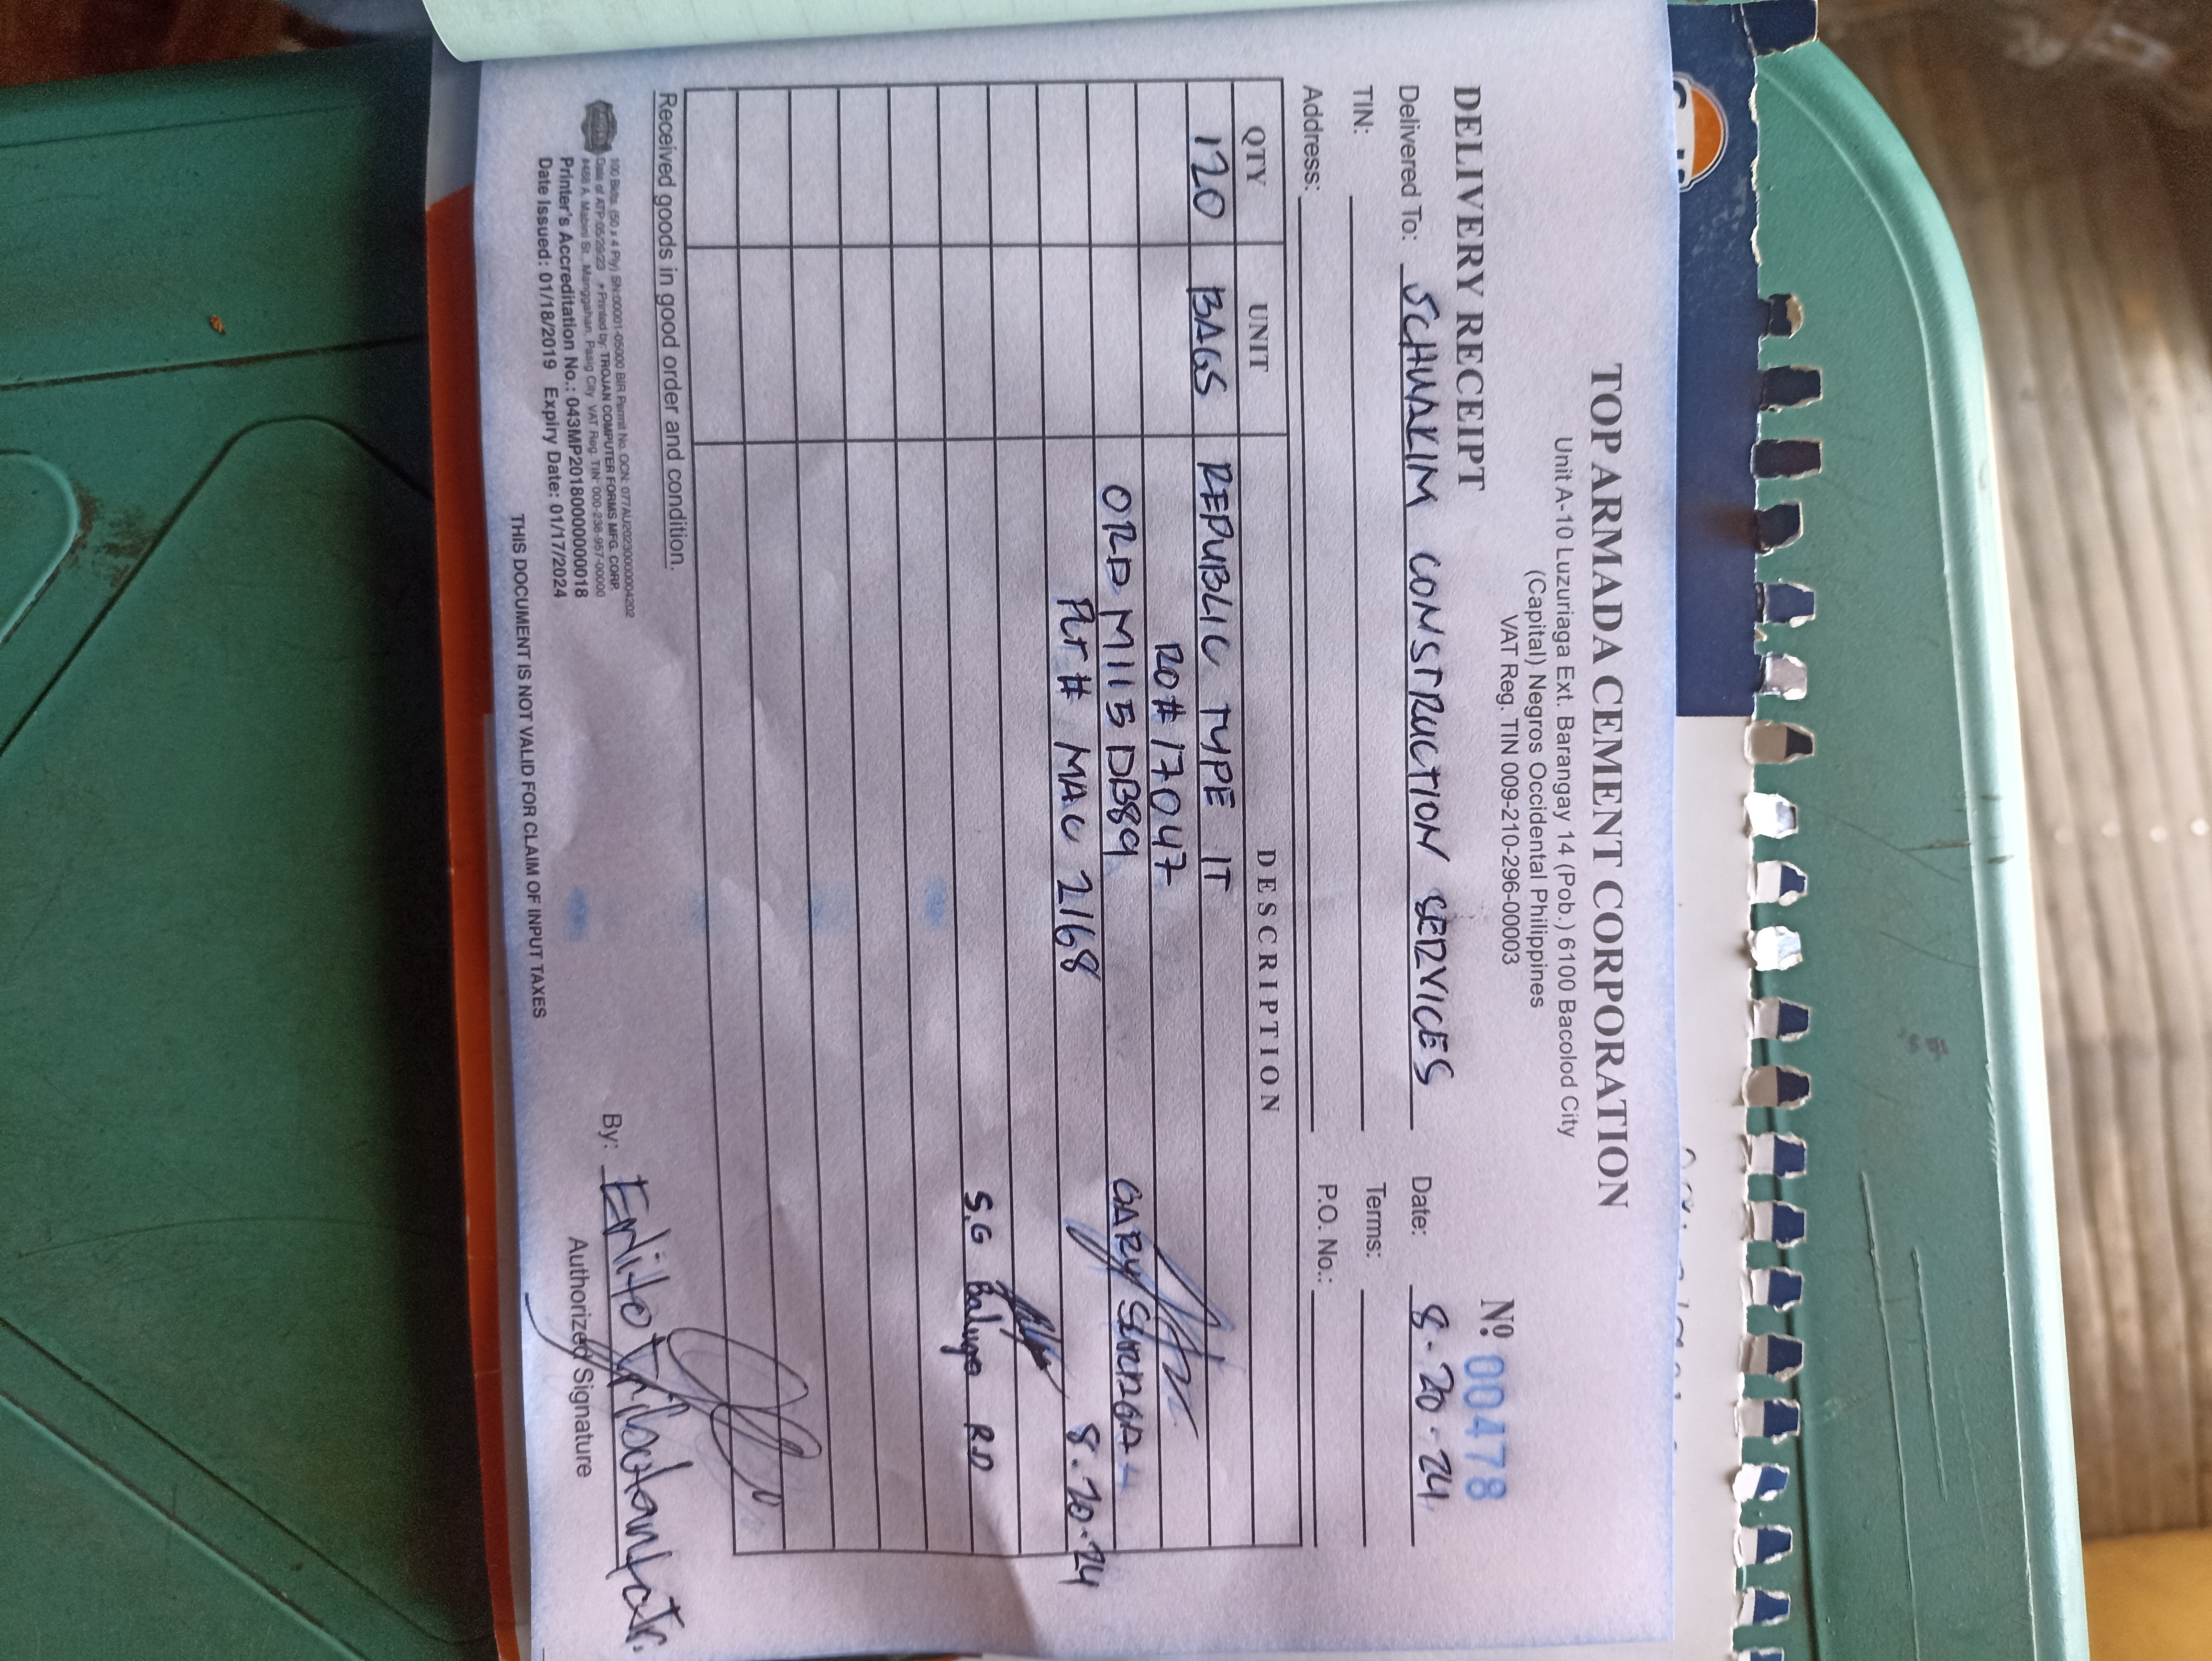 TOP ARMADA CEMENT CORPORATION
Unit A-10 Luzuriaga Ext. Barangay 14 (Pob.) 6100 Bacolod City
(Capital) Negros Occidental Philippines
VAT Reg. TIN 009-210-296-00003
DELIVERY RECEIPT
Nº 00478
Delivered To: SCHUAKIM CONSTRUCTION SERVICES Date: 8-20-24
TIN: Terms:
Address: P.O. No.:
QTY UNIT DESCRIPTION
120 BAGS REPUBLIC TYPE 1T
RO# 17047
ORD M1115DB89
PLT# MAC 2168
GARY
8-20-24
S.G R.D
Received goods in good order and condition.
100 Bklts. (50 x 4 Ply) SN:00001-05000 BIR Permit No. OCN: 077AU20230000004202
Date of ATP:05/29/23 • Printed by: TROJAN COMPUTER FORMS MFG. CORP.
#468 A. Mabini St., Manggahan, Pasig City VAT Reg. TIN: 000-238-957-00000
Printer's Accreditation No.: 043MP20180000000018
Date Issued: 01/18/2019 Expiry Date: 01/17/2024
By: Erlito
Authorized Signature
THIS DOCUMENT IS NOT VALID FOR CLAIM OF INPUT TAXES